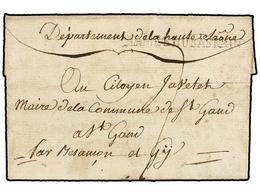 Département de la haute Saône
Au Citoyen Javetet
Maire de la Commune de St Gand
a St Gand
par Besançon et Gÿ